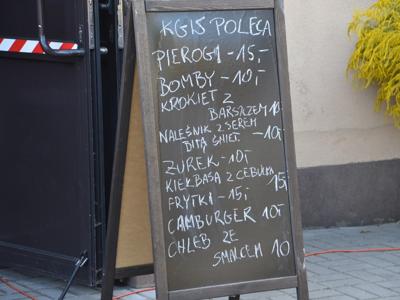 KGW POLECA
PIEROGI - 15,-
BOMBY - 10,-
KROKIET Z
BARSZCZEM 10
NALEŚNIK Z SEREM
BITĄ ŚMIET. - 10,-
ŻUREK - 10,-
KIEŁBASA Z CEBULKĄ 15,-
FRYTKI - 15,-
CAMBURGER 10,-
CHLEB ZE
SMALCEM 10